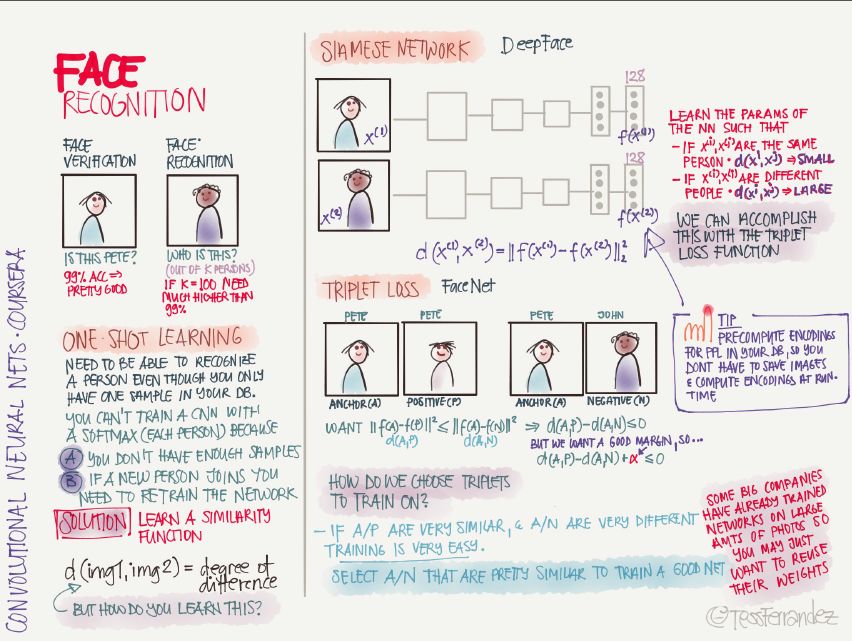 FACE
RECOGNITION
FACE
VERIFICATION
IS THIS PETE?
99% ACC ⇒
PRETTY GOOD
FACE·
RECOGNITION
WHO IS THIS?
(OUT OF K PERSONS)
IF K=100 NEED
MUCH HIGHER THAN
99%
ONE SHOT LEARNING
NEED TO BE ABLE TO RECOGNIZE
A PERSON EVEN THOUGH YOU ONLY
HAVE ONE SAMPLE IN YOUR DB.
YOU CAN'T TRAIN A CNN WITH
A SOFTMAX (EACH PERSON) BECAUSE
A YOU DON'T HAVE ENOUGH SAMPLES
B IF A NEW PERSON JOINS YOU
NEED TO RETRAIN THE NETWORK
SOLUTION LEARN A SIMILARITY
FUNCTION
d(img1, img2) = degree of
difference
BUT HOW DO YOU LEARN THIS?
CONVOLUTIONAL NEURAL NETS · COURSERA
SIAMESE NETWORK DeepFace
x⁽¹⁾
128
f(x⁽¹⁾)
x⁽²⁾
128
f(x⁽²⁾)
d(x⁽¹⁾, x⁽²⁾) = ‖f(x⁽¹⁾) - f(x⁽²⁾)‖₂²
LEARN THE PARAMS OF
THE NN SUCH THAT
- IF x⁽ⁱ⁾, x⁽ʲ⁾ ARE THE SAME
PERSON · d(xⁱ, xʲ) ⇒ SMALL
- IF x⁽ⁱ⁾, x⁽ʲ⁾ ARE DIFFERENT
PEOPLE · d(xⁱ, xʲ) ⇒ LARGE
WE CAN ACCOMPLISH
THIS WITH THE TRIPLET
LOSS FUNCTION
TIP
PRECOMPUTE ENCODINGS
FOR PPL IN YOUR DB, SO YOU
DONT HAVE TO SAVE IMAGES
& COMPUTE ENCODINGS AT RUN-
TIME
TRIPLET LOSS FaceNet
PETE PETE PETE JOHN
ANCHOR (A) POSITIVE (P) ANCHOR (A) NEGATIVE (N)
WANT ‖f(A)-f(P)‖² ≤ ‖f(A)-f(N)‖² ⇒ d(A,P)-d(A,N) ≤ 0
d(A,P) d(A,N)
BUT WE WANT A GOOD MARGIN, SO...
d(A,P)-d(A,N)+α ≤ 0
HOW DO WE CHOOSE TRIPLETS
TO TRAIN ON?
- IF A/P ARE VERY SIMILAR, & A/N ARE VERY DIFFERENT
TRAINING IS VERY EASY.
SELECT A/N THAT ARE PRETTY SIMILAR TO TRAIN A GOOD NET
SOME BIG COMPANIES
HAVE ALREADY TRAINED
NETWORKS ON LARGE
AMTS OF PHOTOS SO
YOU MAY JUST
WANT TO REUSE
THEIR WEIGHTS
@TessFerrandez